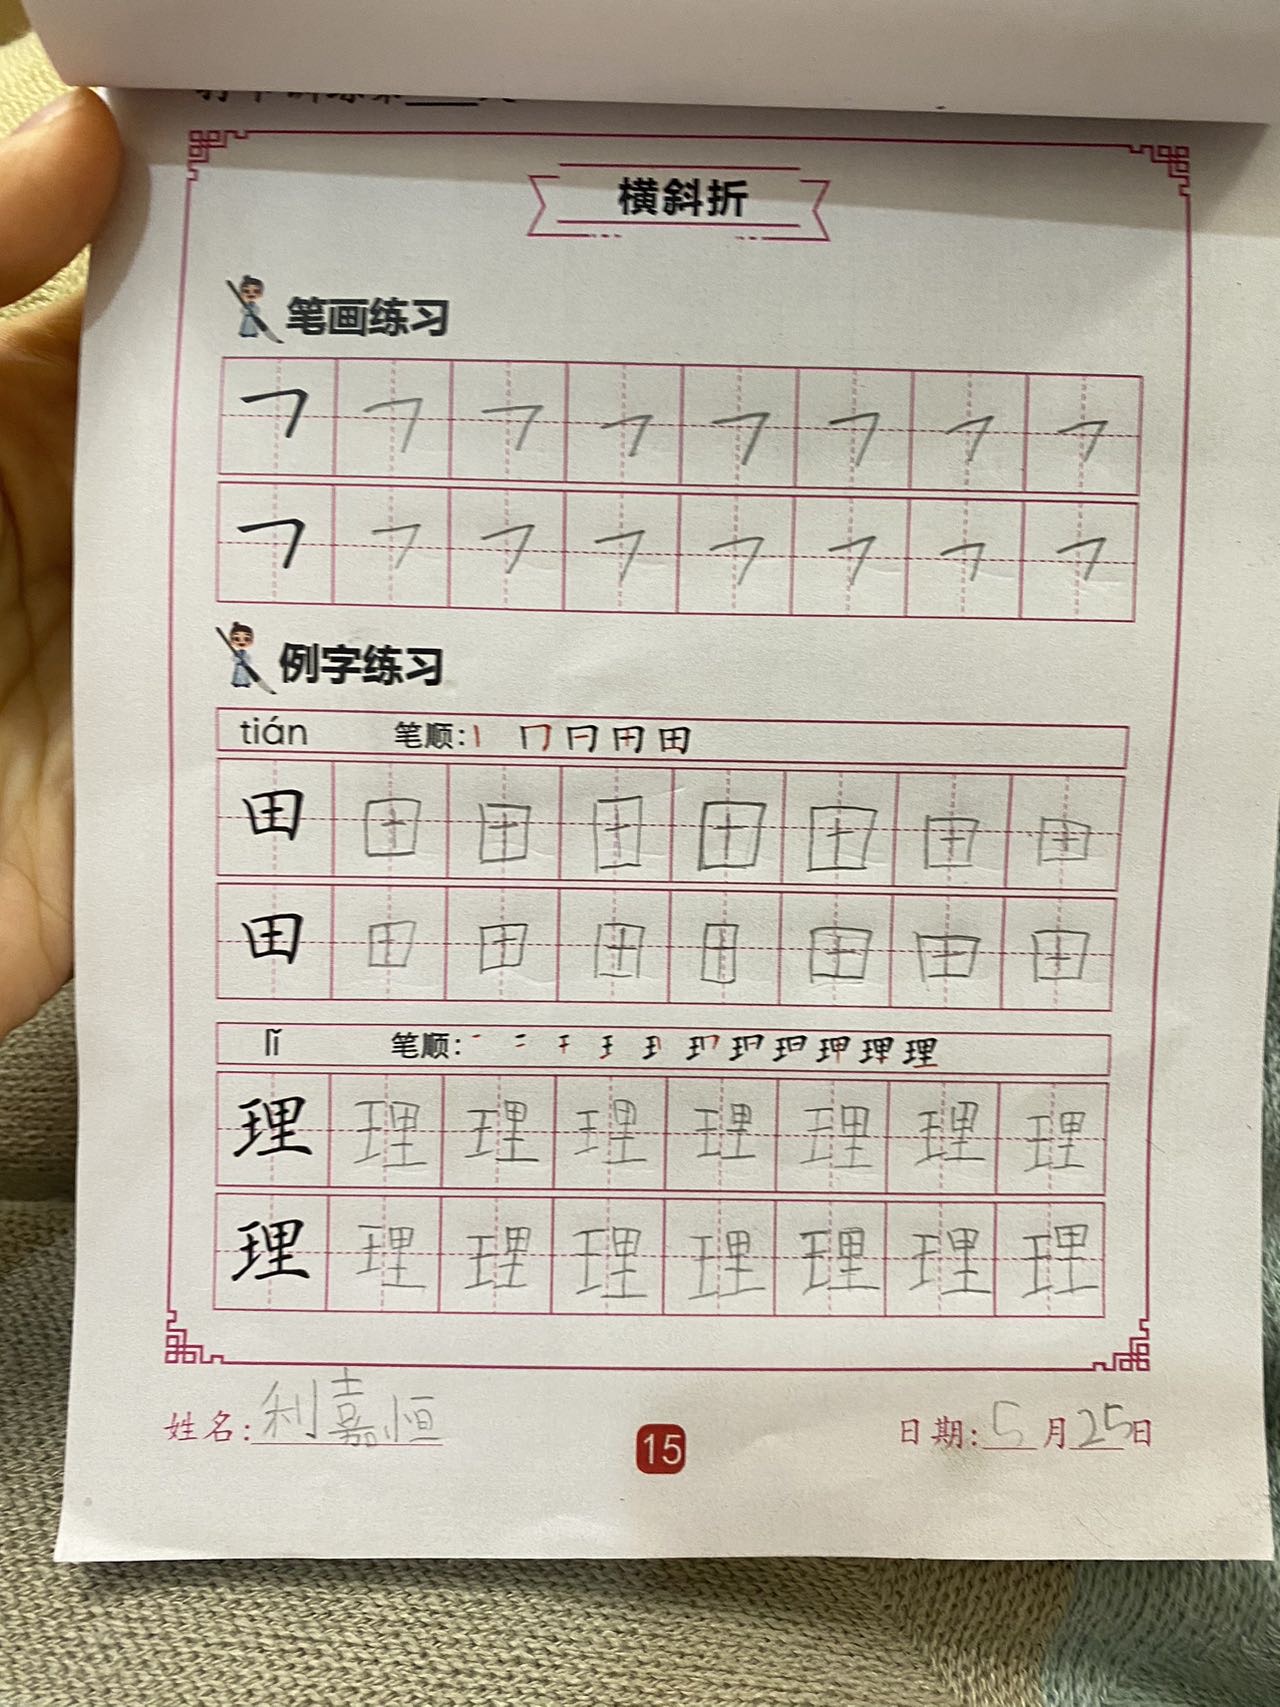 横斜折
笔画练习
㇇ ㇇ ㇇ ㇇ ㇇ ㇇ ㇇ ㇇
㇇ ㇇ ㇇ ㇇ ㇇ ㇇ ㇇ ㇇
例字练习
tián 笔顺: 丨 冂 日 田 田
田 田 田 田 田 田 田 田
田 田 田 田 田 田 田 田
lǐ 笔顺:
理 理 理 理 理 理 理 理
理 理 理 理 理 理 理 理
姓名: 利嘉恒 15 日期: 5 月 25 日